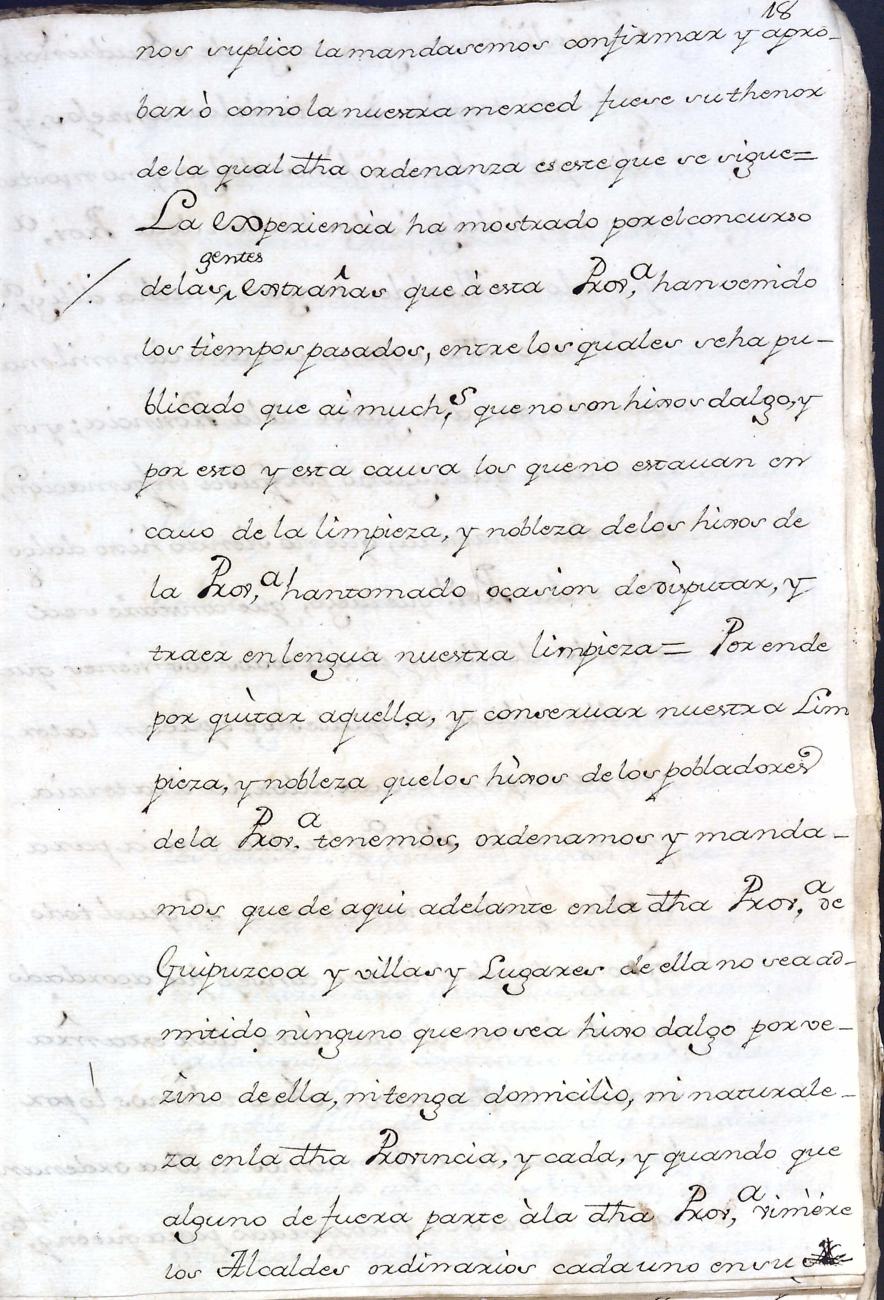 18
nos suplico la mandasemos confirmar y apro-
bar ò como la nuestra merced fuese su thenor
de la qual dha ordenanza es este que se sigue=
La experiencia ha mostrado por el concurso
gentes
de las, extrañas que à esta Prov,ª han venido
los tiempos pasados, entre los quales se ha pu-
blicado que ai much,s que no son hixos dalgo, y
por esto y esta causa los que no estauan en
cauo de la limpieza, y nobleza de los hixos de
la Prov,ª han tomado ocasion de disputar, y
traer en lengua nuestra limpieza= Por ende
por quitar aquella, y conseruar nuestra Lim
pieza, y nobleza que los hixos de los pobladores
de la Prov.ª tenemos, ordenamos y manda-
mos que de aqui adelante en la dha Prov,ª de
Guipuzcoa y villas y Lugares de ella no sea ad-
mitido ninguno que no sea hixo dalgo por ve-
zino de ella, ni tenga domicilio, ni naturale-
za en la dha Provincia, y cada, y quando que
alguno de fuera parte à la dha Prov,ª viniere
los Alcaldes ordinarios cada uno en su